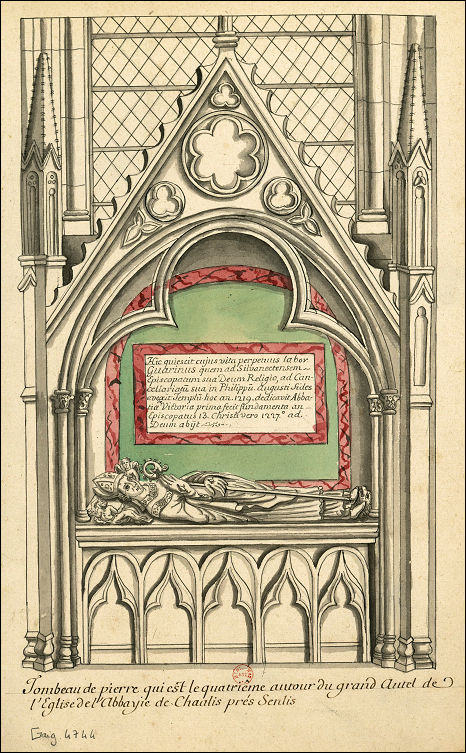 Hic quiescit cujus vita perpetuus labor
Guarinus quem ad Silvanectensem
Episcopatum sua Deum Religio, ad Can-
cellariatũ sua in Philippũ Augustũ fides
evexit Templũ hoc an. 1219. dedicavit Abba-
tiæ Victoria prima fecit fundamenta an
Episcopatus 13. Christi vero 1227.° ad
Deum abijt
Tombeau de pierre qui est le quatrieme autour du grand Autel de
l'Eglise de l'Abbayie de Chaalis prés Senlis
Gaig. 4744